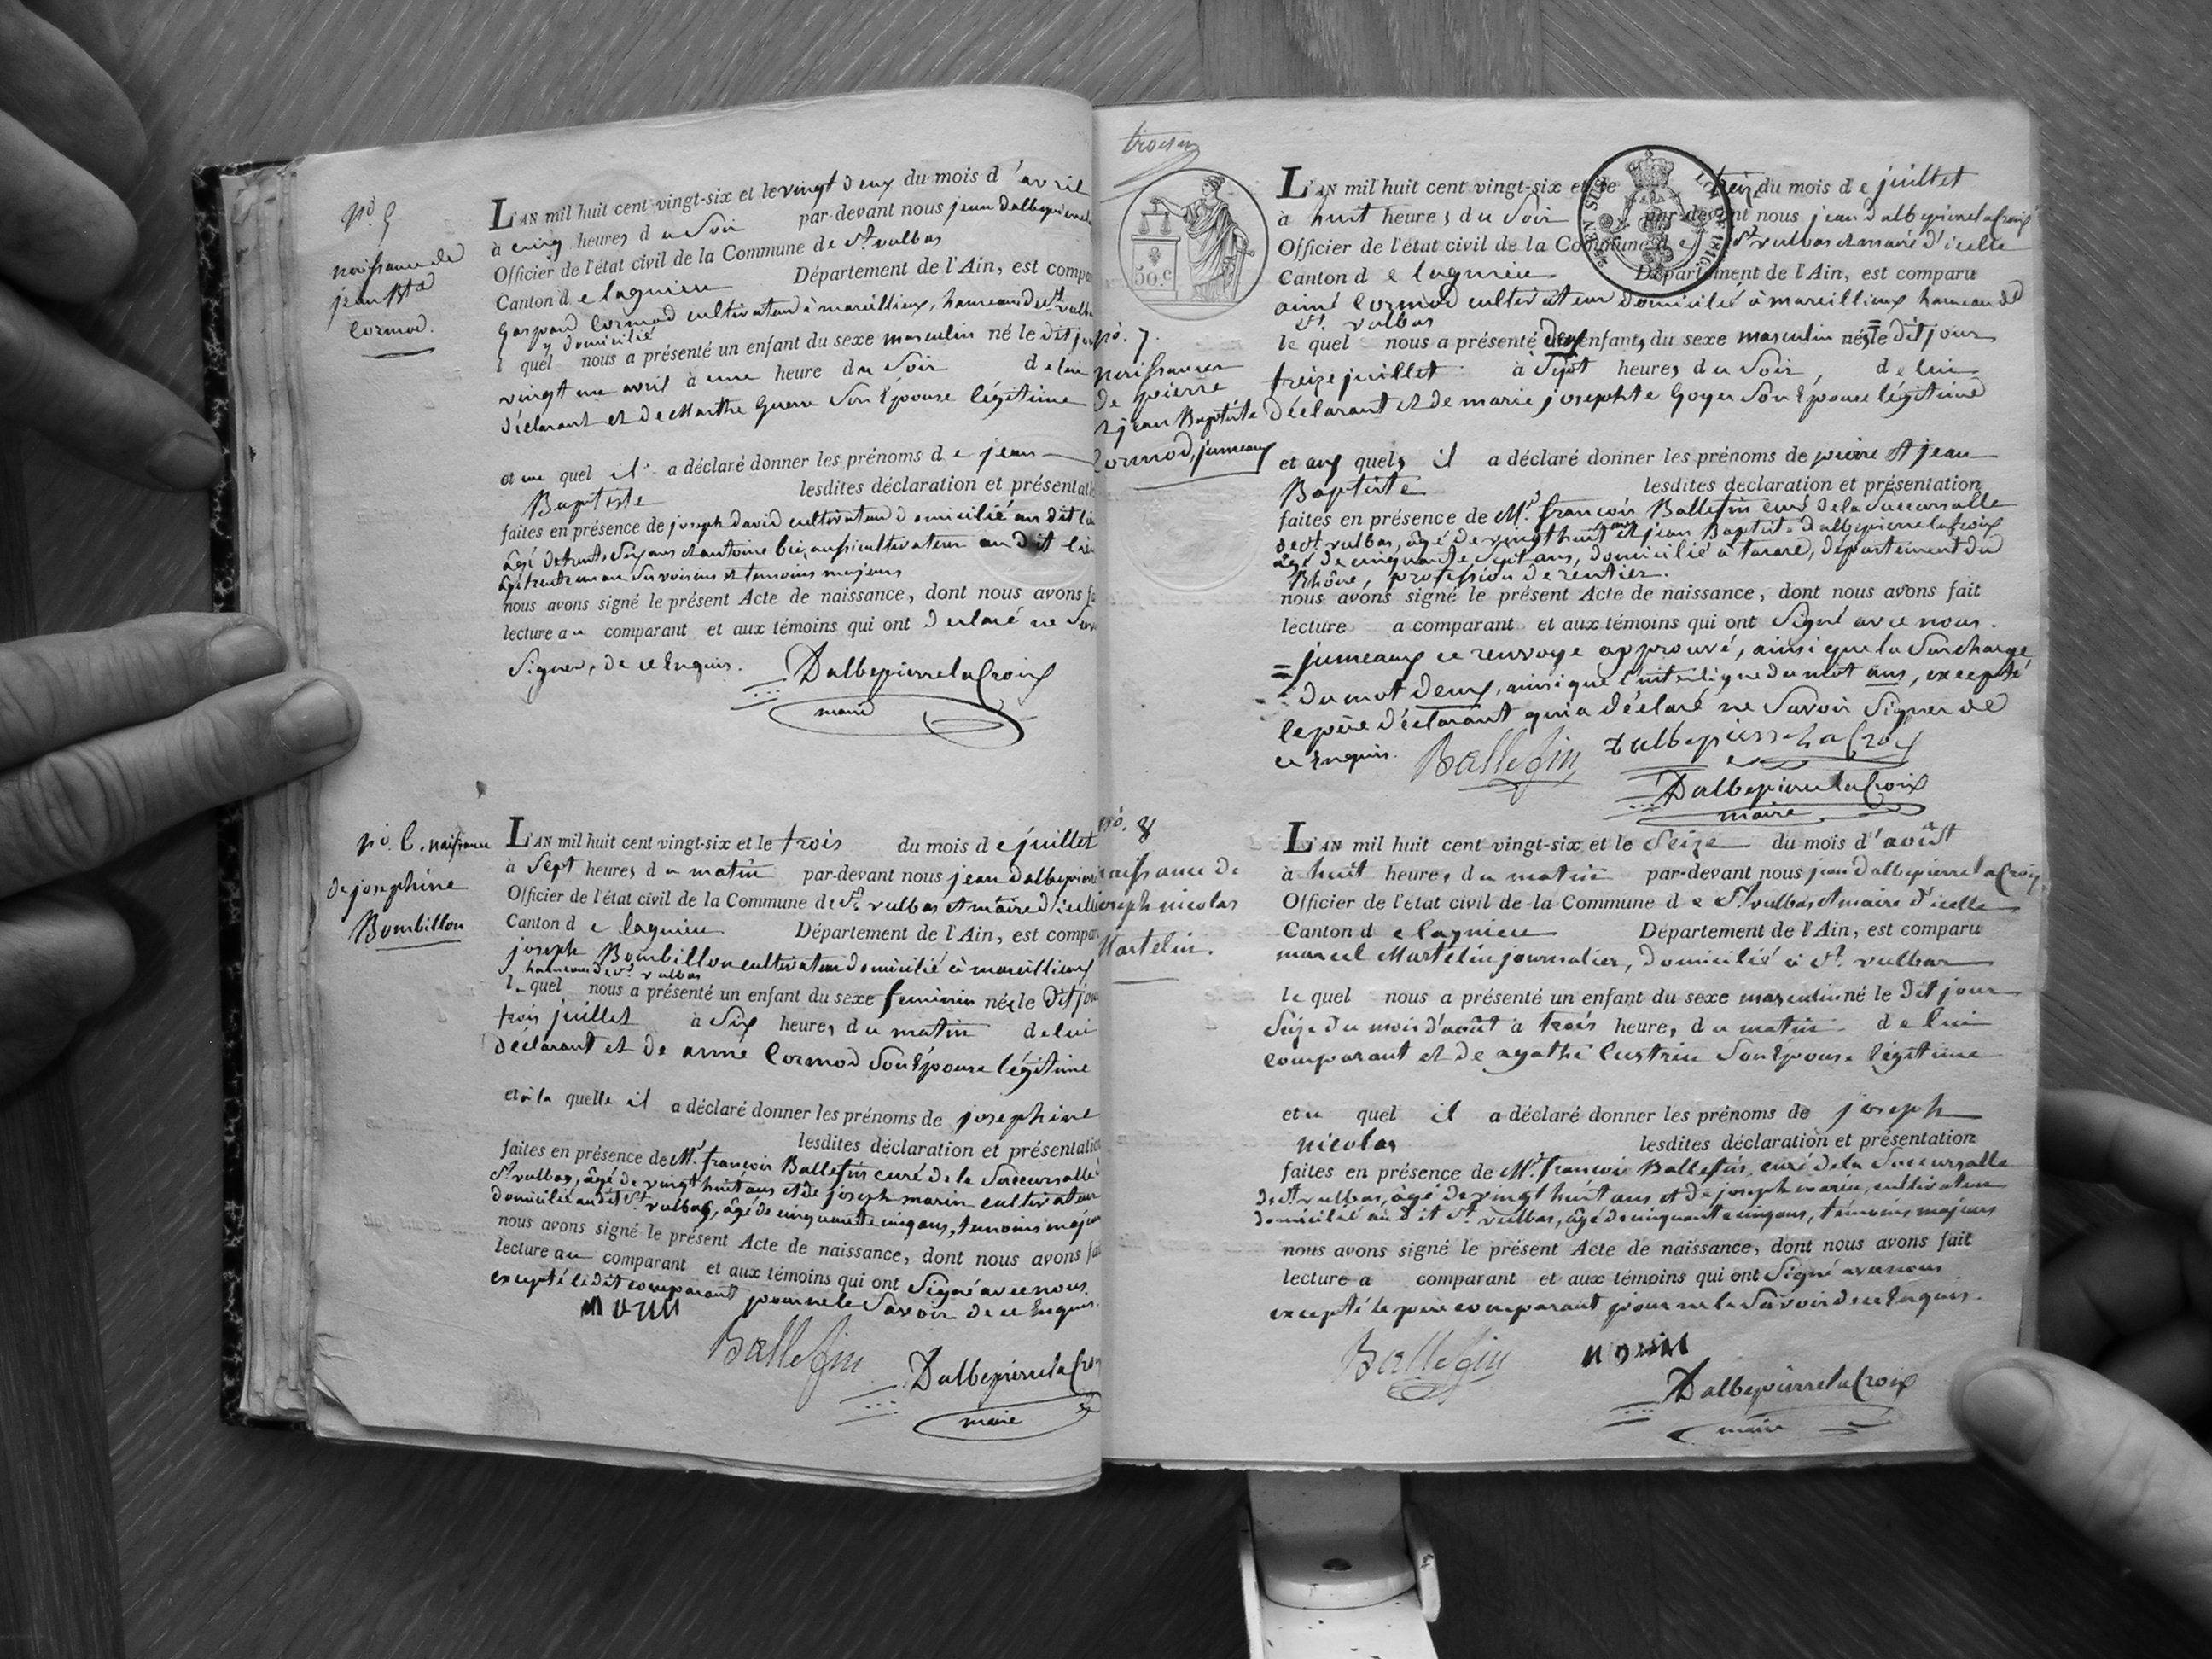 N°. 5
naissance de
jean Bte
Cormod.
L'AN mil huit cent vingt-six et le vingt deux du mois d'avril
à cinq heures du Soir par-devant nous jean dalbepierrela
Officier de l'état civil de la Commune de St. vulbas
Canton de lagnieu Département de l'Ain, est compa
Gaspard Cormod cultivateur à marcillieux, hameau de St. vulba
y domicilié
lequel nous a présenté un enfant du sexe masculin né le dit jour
vingt un avril à une heure du Soir de lui
déclarant et de Marthe Guerre Son Epouse légitime
et au quel il a déclaré donner les prénoms de jean
Baptiste lesdites déclaration et présentati
faites en présence de joseph david cultivateur domicilié au dit lieu
âgé de trente Six ans et antoine aussi cultivateur au dit lieu
âgé trente un an Ses voisins et temoins majeurs
nous avons signé le présent Acte de naissance, dont nous avons fa
lecture au comparant et aux témoins qui ont declaré ne Sav
Signer, de ce Enquis. DalbepierrelaCroix
maire
N°. 6. naissance
de josephine
Bombillon
L'AN mil huit cent vingt-six et le trois du mois de juillet
à Sept heures du matin par-devant nous jean dalbepierre
Officier de l'état civil de la Commune de St. vulbas et maire d'icelle
Canton de lagnieu Département de l'Ain, est compar
joseph Bombillon cultivateur domicilié à marcillieux
hameau de St. vulbas
lequel nous a présenté un enfant du sexe feminin née le dit jour
trois juillet à Six heures du matin de lui
déclarant et de anne Cormod Son Epouse légitime
et à la quelle il a déclaré donner les prénoms de josephine
lesdites déclaration et présentatio
faites en présence de Mr. françois Ballefin curé de la Succursalle
St. vulbas, âgé de vingt huit ans et de joseph marin cultivateur
domicilié au dit St. vulbas, âgé de cinquante cinq ans, temoins majeurs
nous avons signé le présent Acte de naissance, dont nous avons fai
lecture au comparant et aux témoins qui ont Signé avec nous.
excepté le dit comparant pour ne le Savoir de ce Enquis.
Ballefin
DalbepierrelaCroi
maire
troisen
50.c
LOI DE 1816.
L'AN mil huit cent vingt-six et le treize du mois de juillet
à huit heures du Soir par-devant nous jean dalbepierrelaCroix
Officier de l'état civil de la Commune de St. vulbas et maire d'icelle
Canton de lagnieu Département de l'Ain, est comparu
aimé Cormod cultivateur domicilié à marcillieux hameau de
St. vulbas
N°. 7.
naissances
de pierre
et jean Baptiste
Cormod, jumeaux
lequel nous a présenté deux enfants du sexe masculin nés = le dit jour
treize juillet à Sept heures du Soir, de lui
déclarant et de marie josephte Goyer Son Epouse légitime
et aux quels il a déclaré donner les prénoms de pierre et jean
Baptiste lesdites déclaration et présentation
faites en présence de Mr. françois Ballefin curé de la Succursalle
de St. vulbas, âgé de vingt huit ans et jean Baptiste dalbepierrelaCroix
âgé de cinquante Sept ans, domicilié à tarare, département du
Rhône, profession de rentier.
nous avons signé le présent Acte de naissance, dont nous avons fait
lecture a comparant et aux témoins qui ont Signé avec nous.
= jumeaux ce renvoye approuvé, ainsi que la Surcharge
du mot deux, ainsi que l'interligne du mot ans, excepté
le père déclarant qui a déclaré ne Savoir Signer de
ce Enquis. Ballefin DalbepierrelaCroix
DalbepierrelaCroix
maire
N°. 8
naissance de
joseph nicolas
Martelin.
L'AN mil huit cent vingt-six et le Seize du mois d'août
à huit heures du matin par-devant nous jean dalbepierrelaCroix
Officier de l'état civil de la Commune de St. vulbas et maire d'icelle
Canton de lagnieu Département de l'Ain, est comparu
marcel Martelin journalier, domicilié à St. vulbas
lequel nous a présenté un enfant du sexe masculin né le dit jour
Seize du mois d'août à trois heures du matin de lui
comparant et de agathe Son Epouse légitime
et au quel il a déclaré donner les prénoms de joseph
nicolas lesdites déclaration et présentation
faites en présence de Mr. françois Ballefin, curé de la Succursalle
de St. vulbas, âgé de vingt huit ans et de joseph marin, cultivateur
domicilié au dit St. vulbas, âgé de cinquante cinq ans, témoins majeurs
nous avons signé le présent Acte de naissance, dont nous avons fait
lecture a comparant et aux témoins qui ont Signé avec nous
excepté le père comparant pour ne le Savoir de ce Enquis.
Ballefin
DalbepierrelaCroix
maire